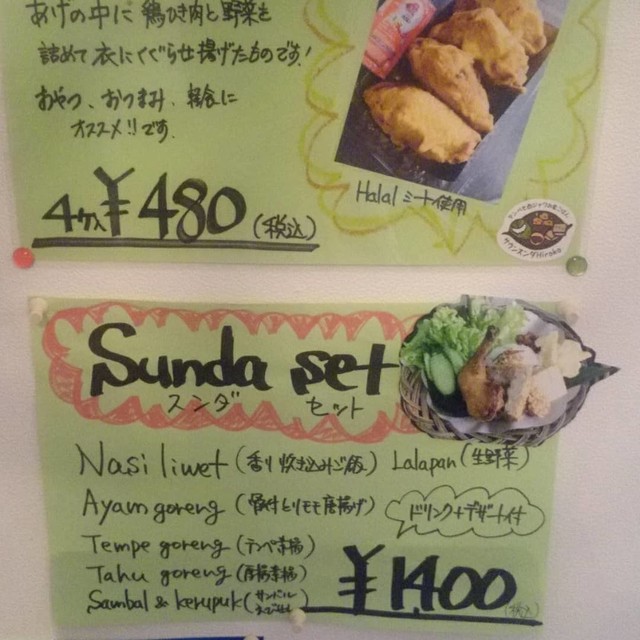 あげの中に 鶏ひき肉と野菜を
詰めて 衣にくぐらせ揚げたものです!
おやつ、おつまみ、軽食に
オススメ!!です.
4ケ入 ¥480(税込)
Halal ミート使用
サウンスンダHiroko
Sunda set
スンダ セット
Nasi liwet(香り炊き込みご飯) Lalapan(生野菜)
Ayam goreng(骨付とりモモ唐揚げ) ドリンク+デザート付
Tempe goreng(テンペ素揚)
Tahu goreng(厚揚素揚)
Sambal & kerupuk(サンバル
¥1,400(税込)